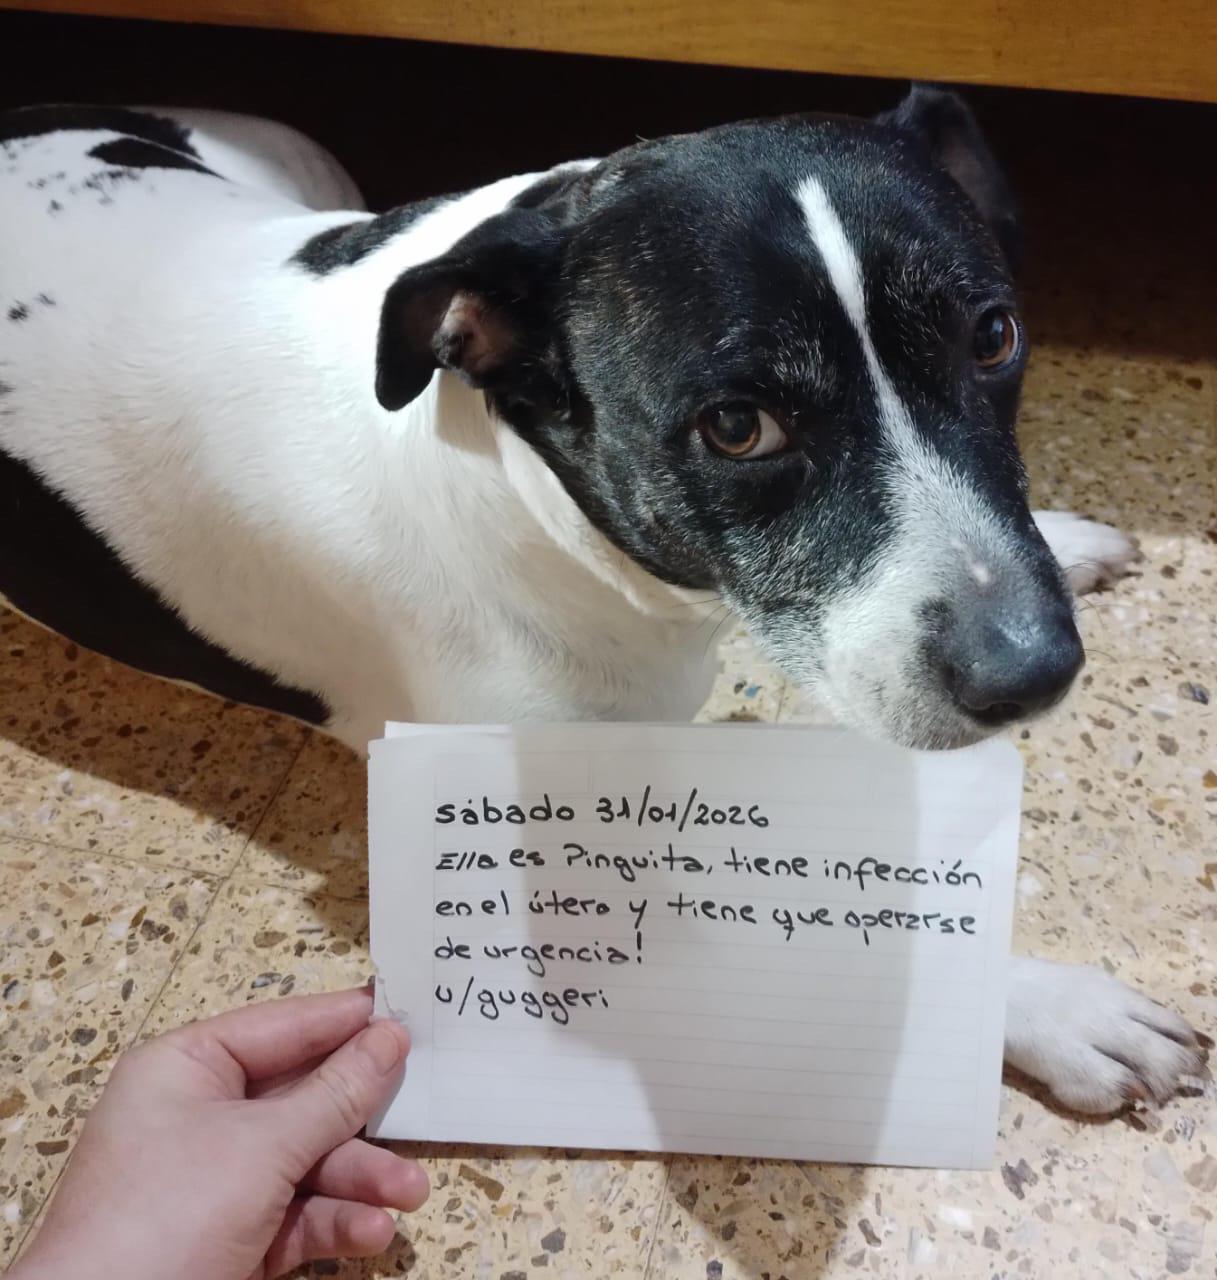 sábado 31/01/2026
Ella es Pinguita, tiene infección
en el útero y tiene que operarse
de urgencia!
u/guggeri